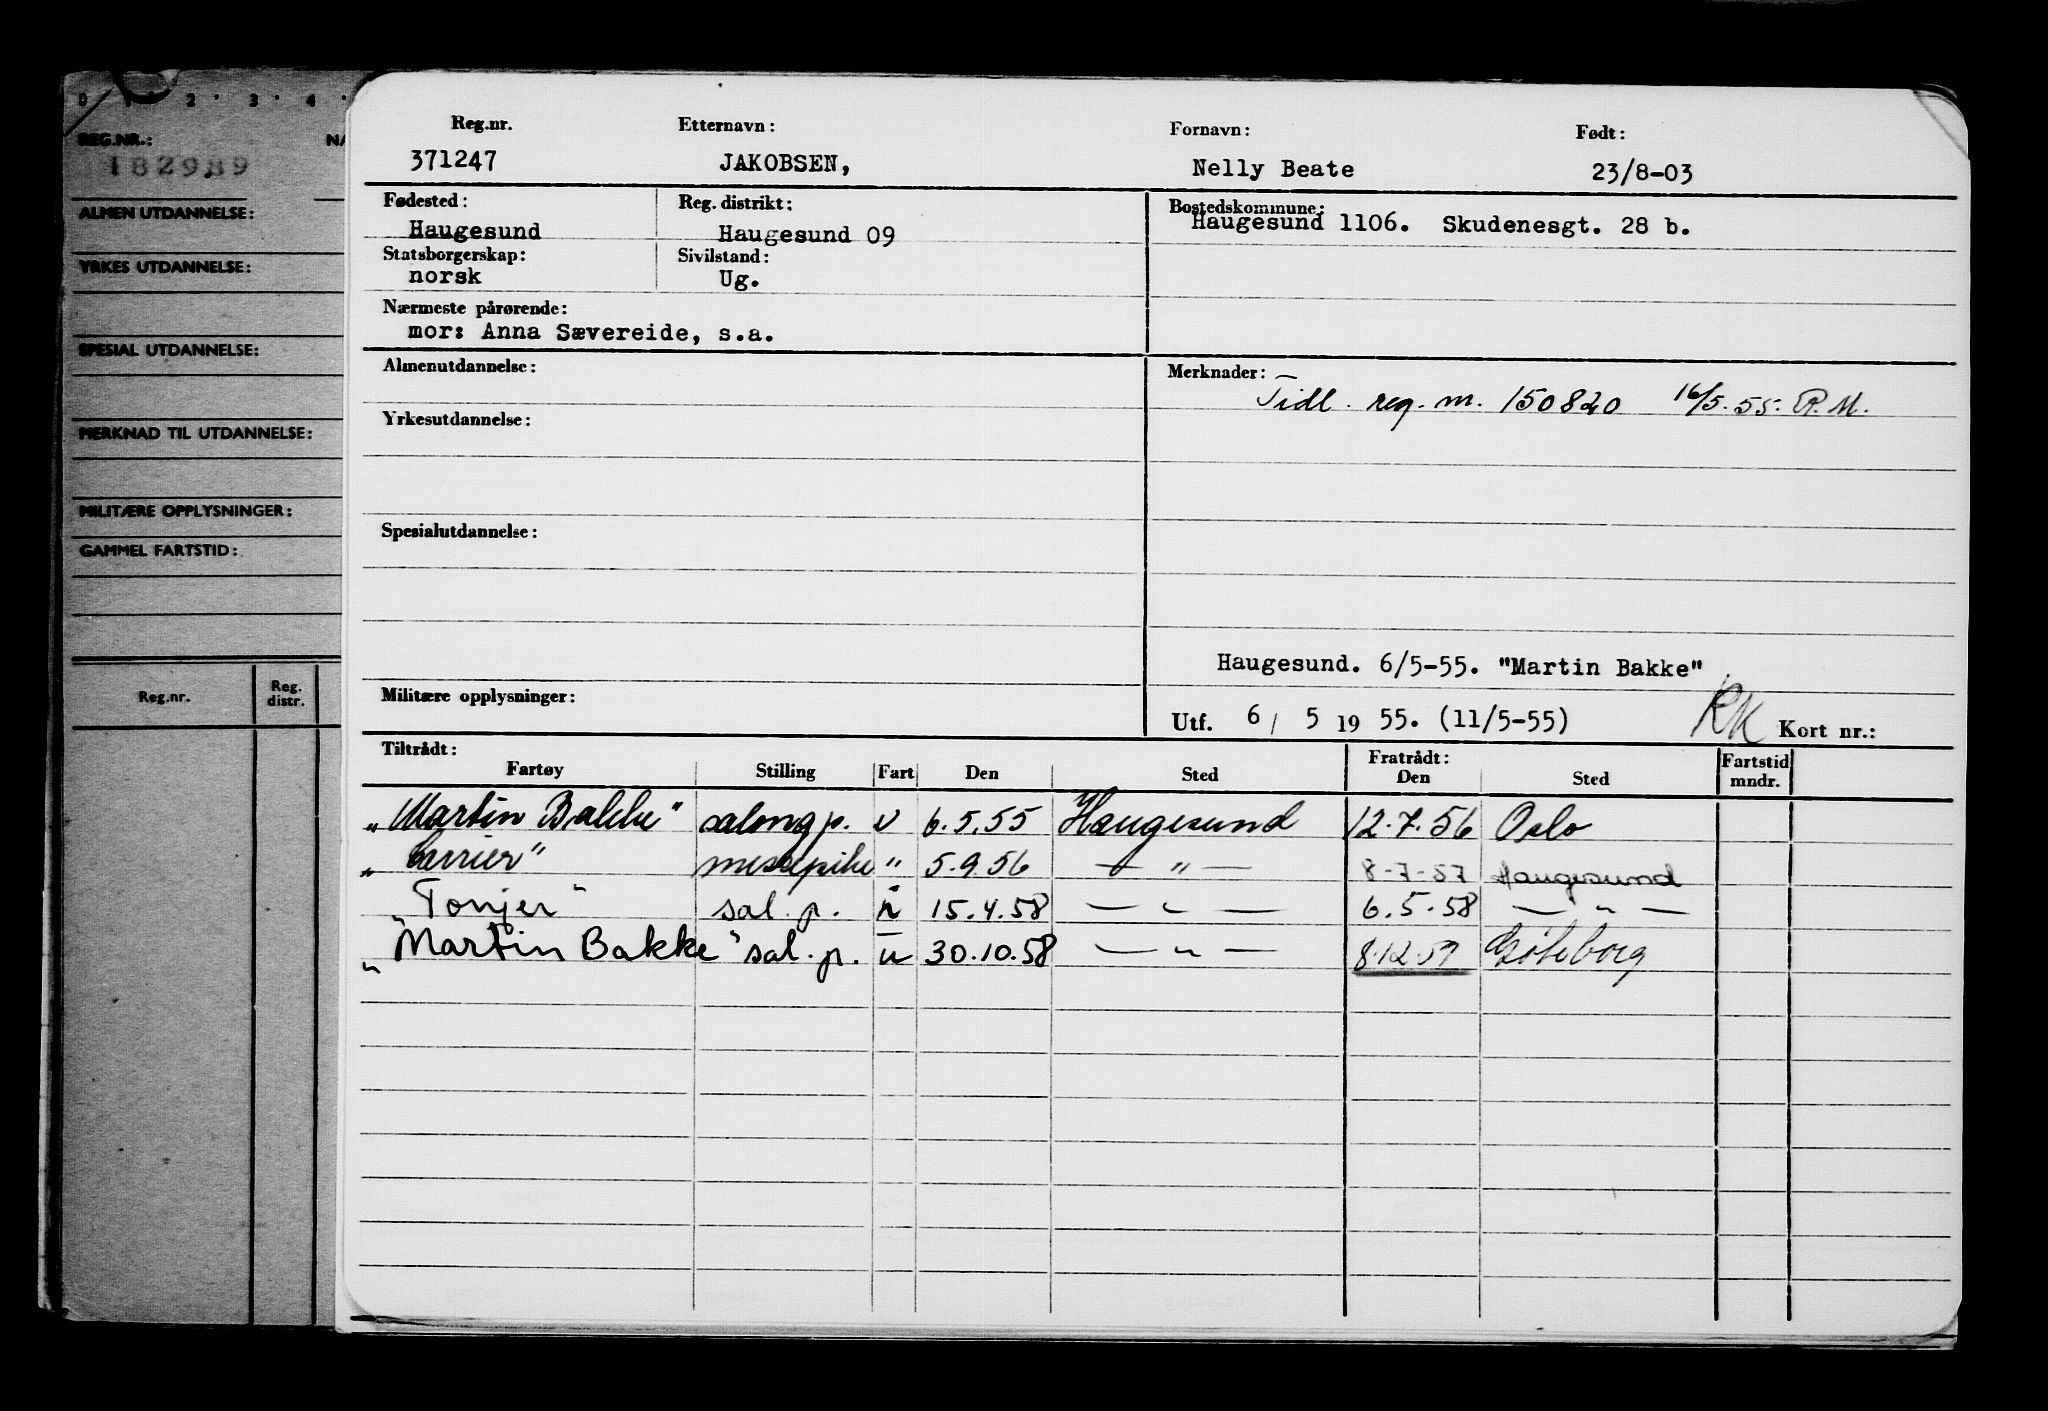 0 1 2 3 4
REG.NR.: NA
182989
ALMEN UTDANNELSE:
YRKES UTDANNELSE:
SPESIAL UTDANNELSE:
MERKNAD TIL UTDANNELSE:
MILITÆRE OPPLYSNINGER:
GAMMEL FARTSTID:
Reg.nr. Reg. distr.
Reg.nr. Etternavn: Fornavn: Født:
371247 JAKOBSEN, Nelly Beate 23/8-03
Fødested: Reg. distrikt: Bostedskommune:
Haugesund Haugesund 09 Haugesund 1106. Skudenesgt. 28 b.
Statsborgerskap: Sivilstand:
norsk Ug.
Nærmeste pårørende:
mor: Anna Sævereide, s.a.
Almenutdannelse: Merknader:
Tidl. reg. nr. 150820 16/5.55. P.M.
Yrkesutdannelse:
Spesialutdannelse:
Haugesund. 6/5-55. "Martin Bakke"
Militære opplysninger:
Utf. 6/ 5 19 55. (11/5-55) RK Kort nr.:
Tiltrådt: Fratrådt: Fartstid
Fartøy Stilling Fart Den Sted Den Sted mndr.
"Martin Bakke" salongp. u 6.5.55 Haugesund 12.7.56 Oslo
"Carrier" messepike " 5.9.56 — " — 8-7-57 Haugesund
"Tonjer" sal. p. i 15.4.58 — " — 6.5.58 — " —
"Martin Bakke" sal. p. u 30.10.58 — " — 8.12.59 Göteborg